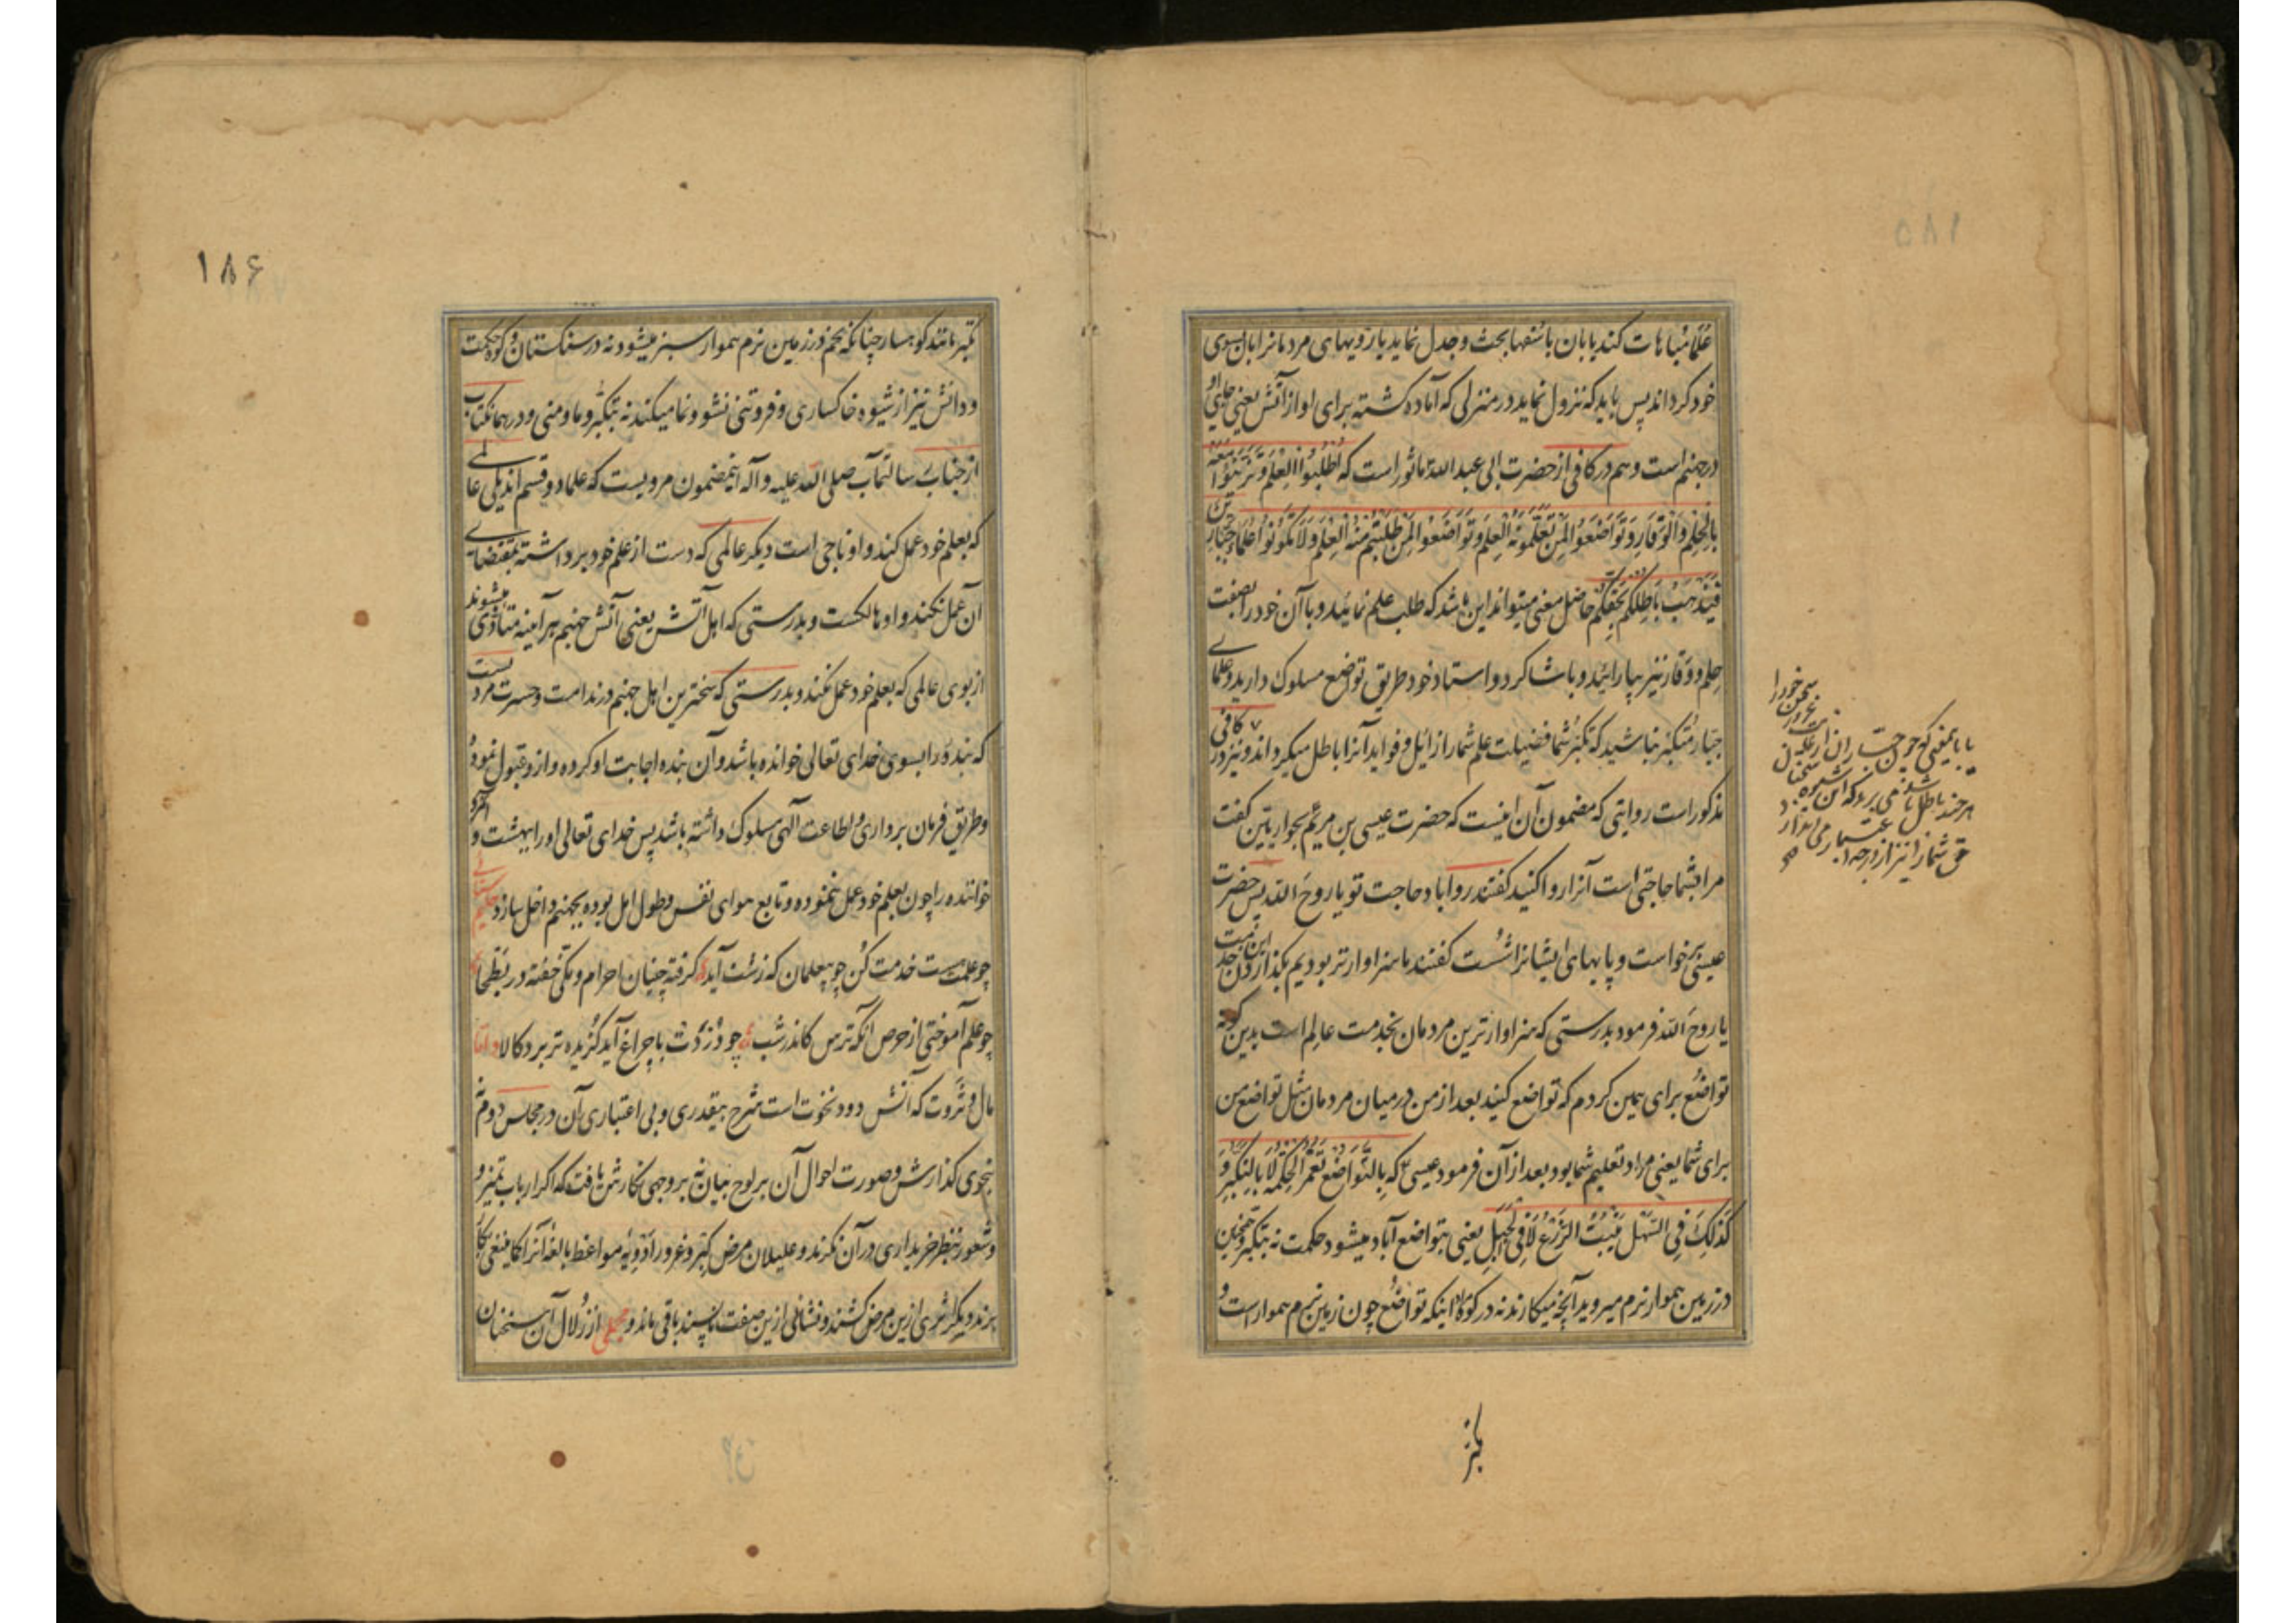 علما مباهات کند یا بان با سفها بحث و جدل نماید یا رویهای مردمانرا بان بسوی
خود گرداند پس باید که نزول نماید در منزلی که آماده کشته برای او از آتش یعنی جای او
در جهنم است و هم در کافی از حضرت ابی عبد الله ماثور است که اُطْلُبُوا الْعِلْمَ وَتَزَیَّنُوا مَعَهُ
بِالْحِلْمِ وَالْوَقَارِ وَتَوَاضَعُوا لِمَنْ تُعَلِّمُونَهُ الْعِلْمَ وَتَوَاضَعُوا لِمَنْ طَلَبْتُمْ مِنْهُ الْعِلْمَ وَلَا تَکُونُوا عُلَمَاءَ جَبَّارِینَ
فَیَذْهَبَ بَاطِلُکُمْ بِحَقِّکُمْ حاصل معنی میتواند این باشد که طلب علم نمائید و با آن خود را بصفت
حلم و وقار نیز بیارائید و با شاکرد و استاد خود طریق تواضع مسلوک دارید و علمای
جبار متکبر نباشید که تکبر شما فضیلت علم شما را زائل و فواید آنرا باطل میکرداند و نیز در کافی
مذکور است روایتی که مضمون آن اینست که حضرت عیسی بن مریم بحواریین کفت
مرا بشما حاجتی است آنرا روا کنید کفتند روا باد حاجت تو یا روح الله پس حضرت
عیسی برخواست و پایهای ایشانرا شست کفتند ما سزاوارتر بودیم بکذاردن این خدمت
یا روح الله فرمود بدرستی که سزاوارترین مردمان بخدمت عالم است بدین کونه
تواضع برای همین کردم که تواضع کنید بعد از من در میان مردمان مثل تواضع من
برای شما یعنی مراد تعلیم شما بود بعد از آن فرمود عیسی که بِالتَّوَاضُعِ تُعْمَرُ الْحِکْمَةُ لَا بِالتَّکَبُّرِ وَ
کَذَلِکَ فِی السَّهْلِ یَنْبُتُ الزَّرْعُ لَا فِی الْجَبَلِ یعنی بتواضع آباد میشود حکمت نه بتکبر و همچنین
در زمین هموار نرم میروید آنچه میکارند نه در کوه مراد اینکه تواضع چون زمین نرم هموار است و
یا باینمعنی که چون جباران
سخن خود را
هر چند باطل باشد
حق شما را نیز از درجه اعتبار می اندازد
تکبر مانند
۱۸۶
تکبر مانند کوهسار چنانکه تخم در زمین نرم هموار سبز میشود نه در سنکستان و کوه حکمت
و دانش نیز از شیوه خاکساری و فروتنی نشو و نما میکند نه بتکبر و ما و منی و در همان کتاب
از جناب رسالتمآب صلی الله علیه و آله اینمضمون مرویست که علما دو قسم اند یکی عالمی
که بعلم خود عمل کند و او ناجی است دیکر عالمی که دست از علم خود برداشته بمقتضای
آن عمل نکند و او هالکست و بدرستی که اهل آتش یعنی آتش جهنم هر آینه متاذی میشوند
از بوی عالمی که بعلم خود عمل نکند و بدرستی که سخترین اهل جهنم در ندامت و حسرت مردیست
که بنده را بسوی خدای تعالی خوانده باشد و آن بنده اجابت او کرده و ازو قبول نموده
و طریق فرمان برداری و اطاعت آلهی مسلوک داشته باشد پس خدای تعالی او را ببهشت و آنمرد
خواننده را چون بعلم خود عمل ننموده و تابع هوای نفس و طول امل بوده بجهنم داخل سازد حکیم سنائی
چو علمت هست خدمت کن چو بیعلمان که زشت آید کرفته چینیان احرام و مکی خفته در بطحا
چو علم آموختی از حرص آنکه ترس کاندر شب چو دزدت با چراغ آید کزیده تر برد کالا و اما
مال و ثروت که آتش دود نخوت است شرح بیقدری و بی اعتباری آن در مجلس دوم
بنحوی کذارش و صورت احوال آن بر لوح بیان نه بر وجهی نکارش یافت که اکر ارباب تمیز و
و شعور بنظر خریداری در آن نکرند و علیلان مرض کبر و غرور ادویه مواعظ بالغه آنرا کاینبغی بکار
برند دیکر اثری ازین مرض کشنده و نشانی ازین صفت ناپسند باقی ماند و مجملی از زلال آن سخنان